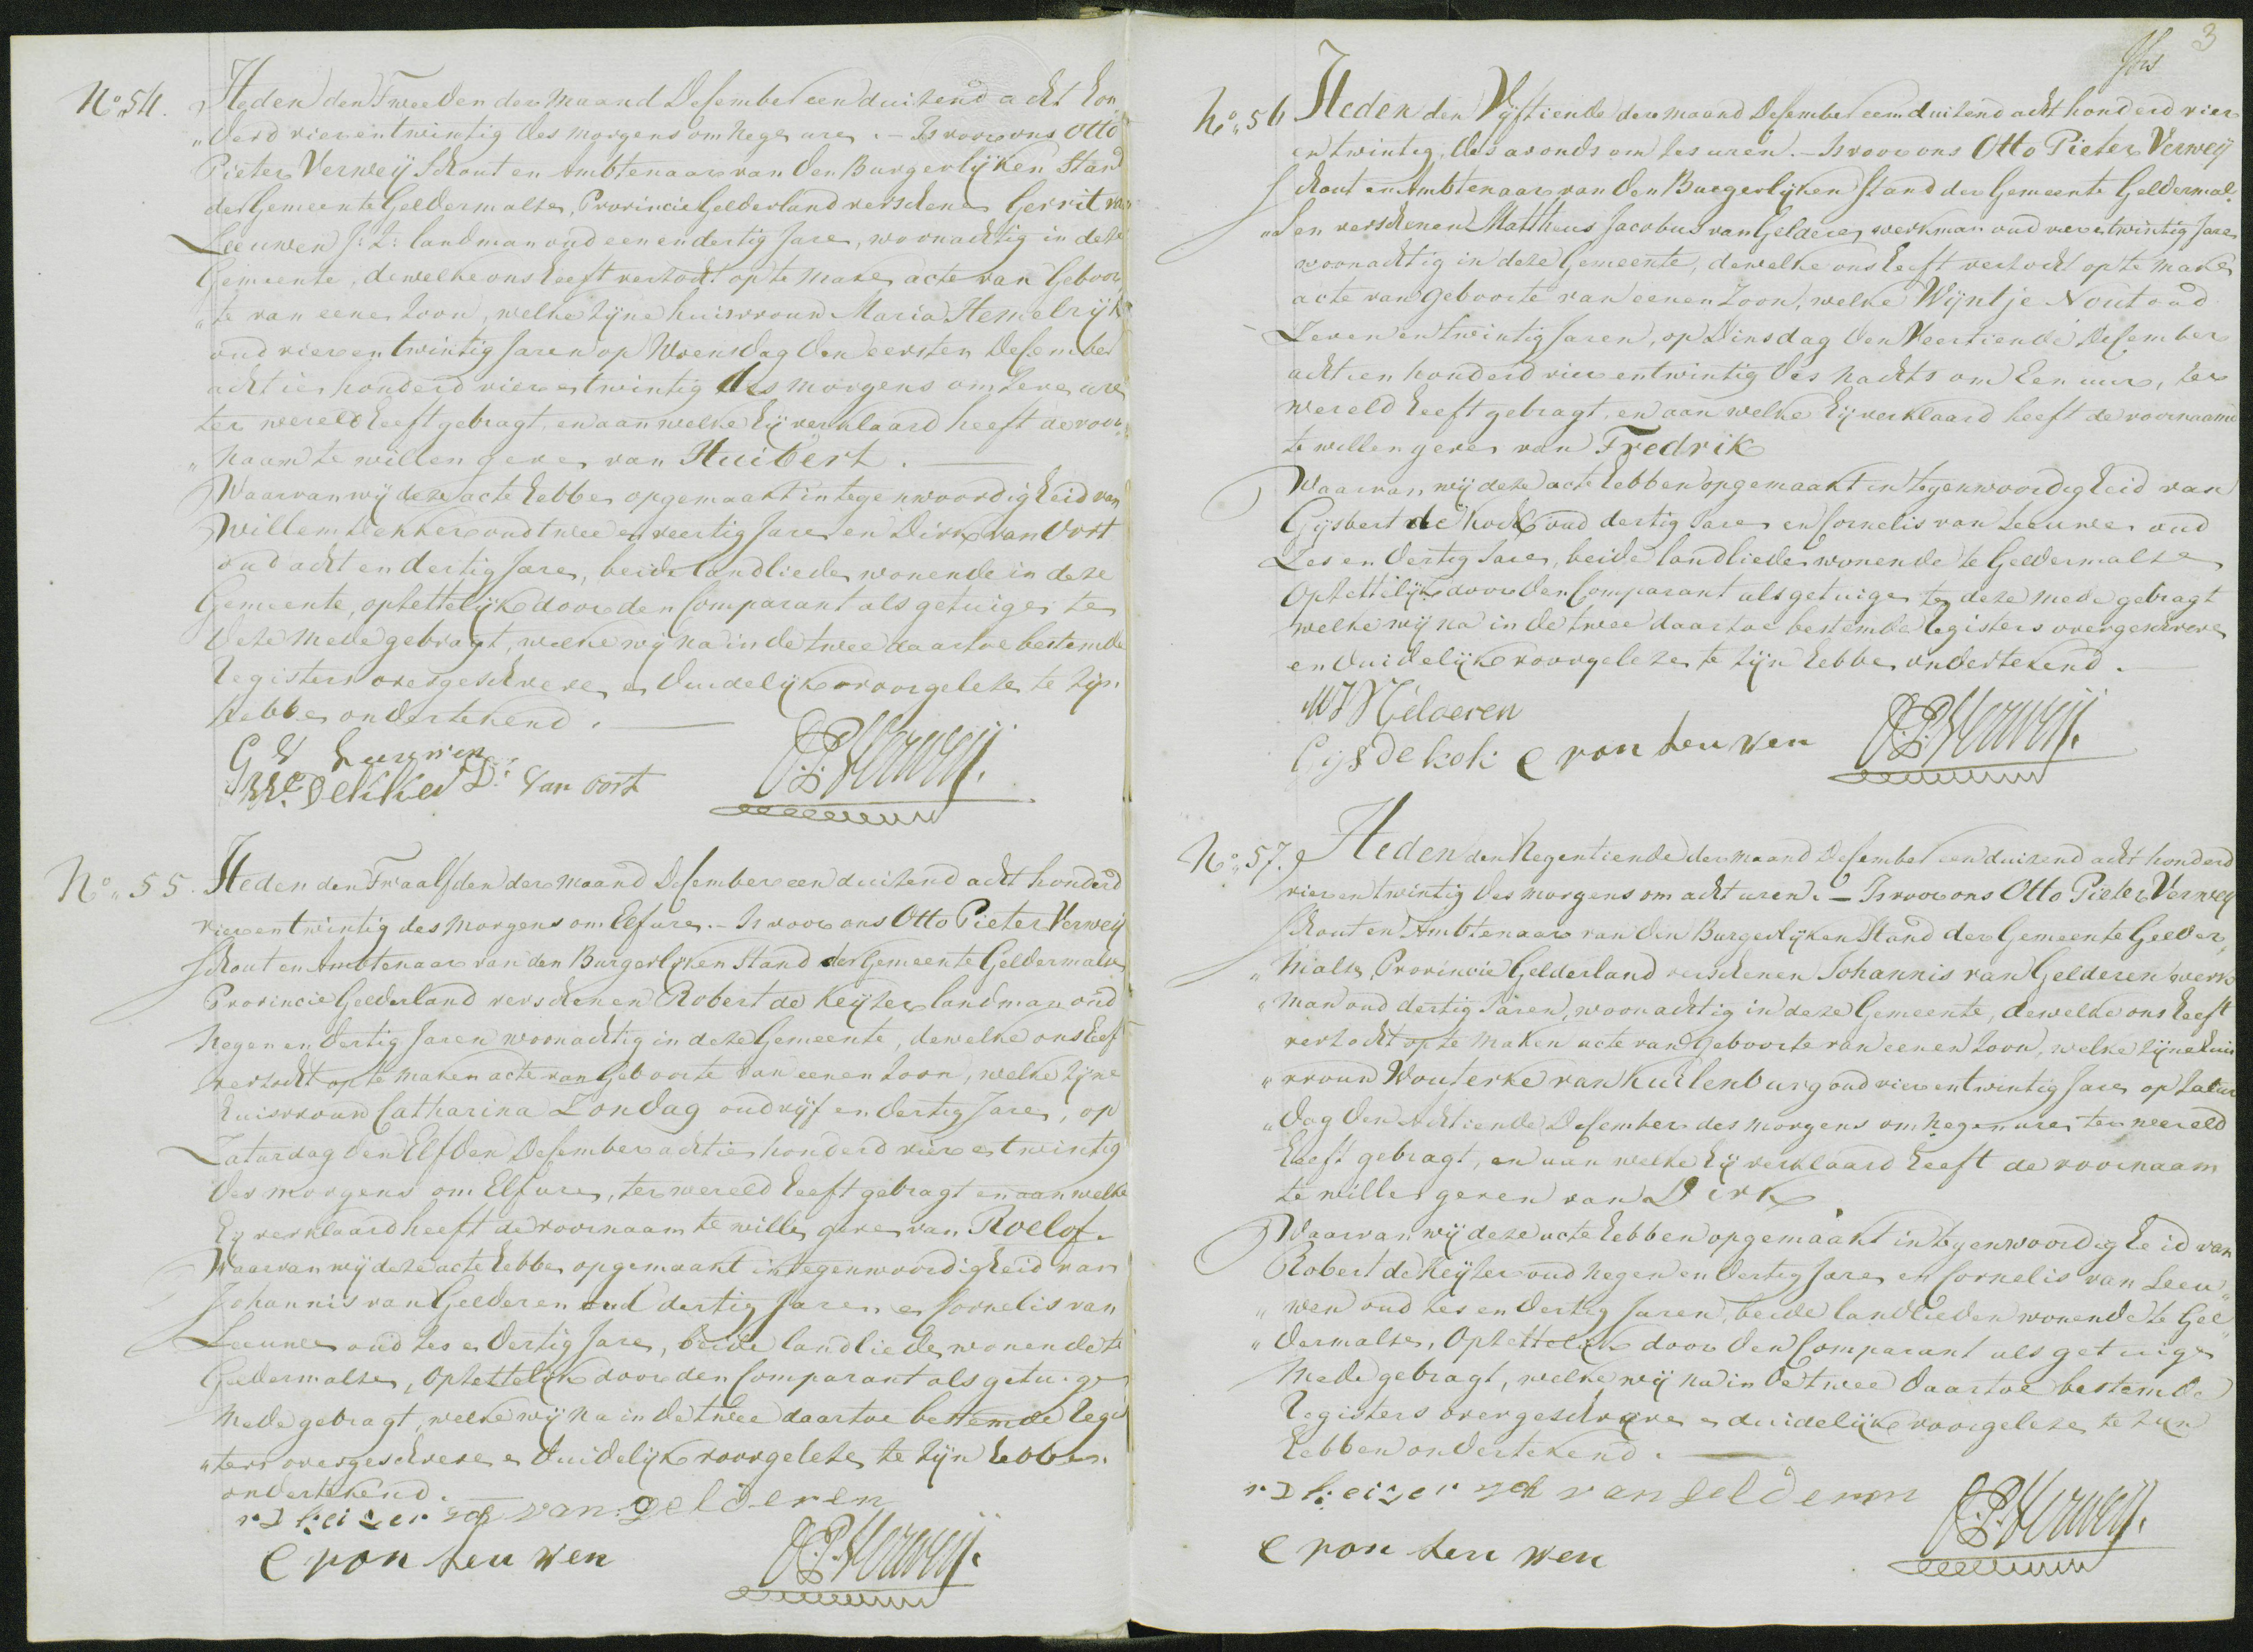 No. 54.
Heden den Tweeden der maand Desember een duitend acht hon
"derd vier en twintig des morgens om nege ure. – Is voor ons Otto
Pieter Verweij Schout en Ambtenaar van den Burgerlijken Stand
der Gemeente Geldermalse, Provincie Gelderland verschene Gerrit van
Leeuwen J: Z: landman oud een en dertig Jare, woonachtig in deze
Gemeente, dewelke ons heeft verzocht op te make acte van Geboor
"te van eene zoon, welke zijne huisvrouw Maria Hemelrijk
oud vier en twintig Jaren op Woensdag den eersten Desember
achtien honderd vier en twintig des morgens om zeve ure
ter wereld heeft gebragt, en aan welke hij verklaard heeft de voor
"naam te willen geve van Huibert.
Waarvan wij deze acte hebbe opgemaakt in tegenwoordigheid van
Willem Dekker oud twee en veertig Jare en Dirk van Oort
oud acht en dertig Jare, beide landliede wonende in deze
Gemeente, opzettelijk door den Comparant als getuige te
deze mede gebragt, welke wij na in de twee daartoe bestemde
Registers overgeschreve en duidelijk voorgeleze te zijn
hebbe ondertekend.
G V Leeuwen
Wl. Dekker Dk van oort
O.P. Verweij.
No. 55.
Heden den Twaalfden der maand Desember een duitend acht honderd
vier en twintig des morgens om Elf ure. – Is voor ons Otto Pieter Verweij
Schout en Ambtenaar van den Burgerlijken Stand der Gemeente Geldermalse
Provincie Gelderland verschenen Robert de Keijzer landman oud
negen en dertig Jaren woonachtig in deze Gemeente, dewelke ons heef
verzocht op te maken acte van Geboorte van eenen zoon, welke zijne
huisvrouw Catharina Zondag oud vijf en dertig Jare, op
Zaturdag den Elfden Desember achtien honderd vier en twintig
des morgens om Elf ure, ter wereld heeft gebragt en aan welke
hij verklaard heeft de voornaam te wille geve van Roelof.
Waarvan wij deze acte hebbe opgemaakt in tegenwoordigheid van
Johannis van Gelderen oud dertig Jaren en Cornelis van
Leeuwe oud zes en dertig Jare, beide landliede wonende te
Geldermalse, opzettelijk door den Comparant als getuige
mede gebragt, welke wij na in de twee daartoe bestemde Regis
"ters overgeschreve en duidelijk voorgeleze te zijn hebben
ondertekend.
r D keizer van gelderen
C van leu wen
O.P. Verweij.
3
No. 56
Heden den Vijftiende der maand Desember een duitend acht honderd vier
en twintig, des avonds om zes uren. – Is voor ons Otto Pieter Verweij
Schout en Ambtenaar van den Burgerlijken Stand der Gemeente Geldermal
"sen verschenen Mattheus Jacobus van Geldere werkman oud vier en twintig Jare
woonachtig in deze Gemeente, dewelke ons heeft verzocht op te make
acte van geboorte van eenen zoon, welke Wijntje Nout oud
Zeven en twintig Jaren, op Dinsdag den Veertiende Desember
achtien honderd vier en twintig des nachts om Een uur, ter
wereld heeft gebragt, en aan welke hij verklaard heeft de voornaame
te willen geve van Fredrik
Waarvan wij deze acte hebben opgemaakt in tegenwoordigheid van
Gijsbert de Kock oud dertig Jare en Cornelis van Leeuwe oud
Zes en dertig Jare, beide landliede wonende te Geldermalse
opzettelijk door den Comparant als getuige te deze mede gebragt
welke wij na in de twee daartoe bestemde Registers overgeschreve
en duidelijk voorgeleze te zijn hebbe ondertekend.
MJ V Gelderen
Gijs de kok C van leu wen
O.P. Verweij.
No. 57.
Heden den Negentiende der maand Desember een duizend acht honderd
vier en twintig des morgens om acht uren. – Is voor ons Otto Pieter Verweij
Schout en Ambtenaar van den Burgerlijken Stand der Gemeente Gelder
"malse Provincie Gelderland verschenen Johannis van Gelderen werk
"man oud dertig Jaren, woonachtig in deze Gemeente, dewelke ons heeft
verzocht op te maken acte van Geboorte van eenen zoon, welke zijne huis
"vrouw Wouterke van Kuilenburg oud vier en twintig Jare op Zatur
"dag den Achtiende Desember des morgens om negen ure ter wereld
heeft gebragt, en aan welke hij verklaard heeft de voornaam
te wille geven van Dirk
Waarvan wij deze acte hebben opgemaakt in tegenwoordigheid van
Robert de Keijzer oud negen en dertig Jare en Cornelis van Leeu
"wen oud zes en dertig Jaren, beide landlieden wonende te Gel
"dermalse, opzettelijk door den Comparant als getuige
mede gebragt, welke wij na in de twee daartoe bestemde
Registers overgeschreve en duidelijk voorgeleze te zijn
hebben ondertekend.
r D keizer van gelderen
C van leu wen
O.P. Verweij.